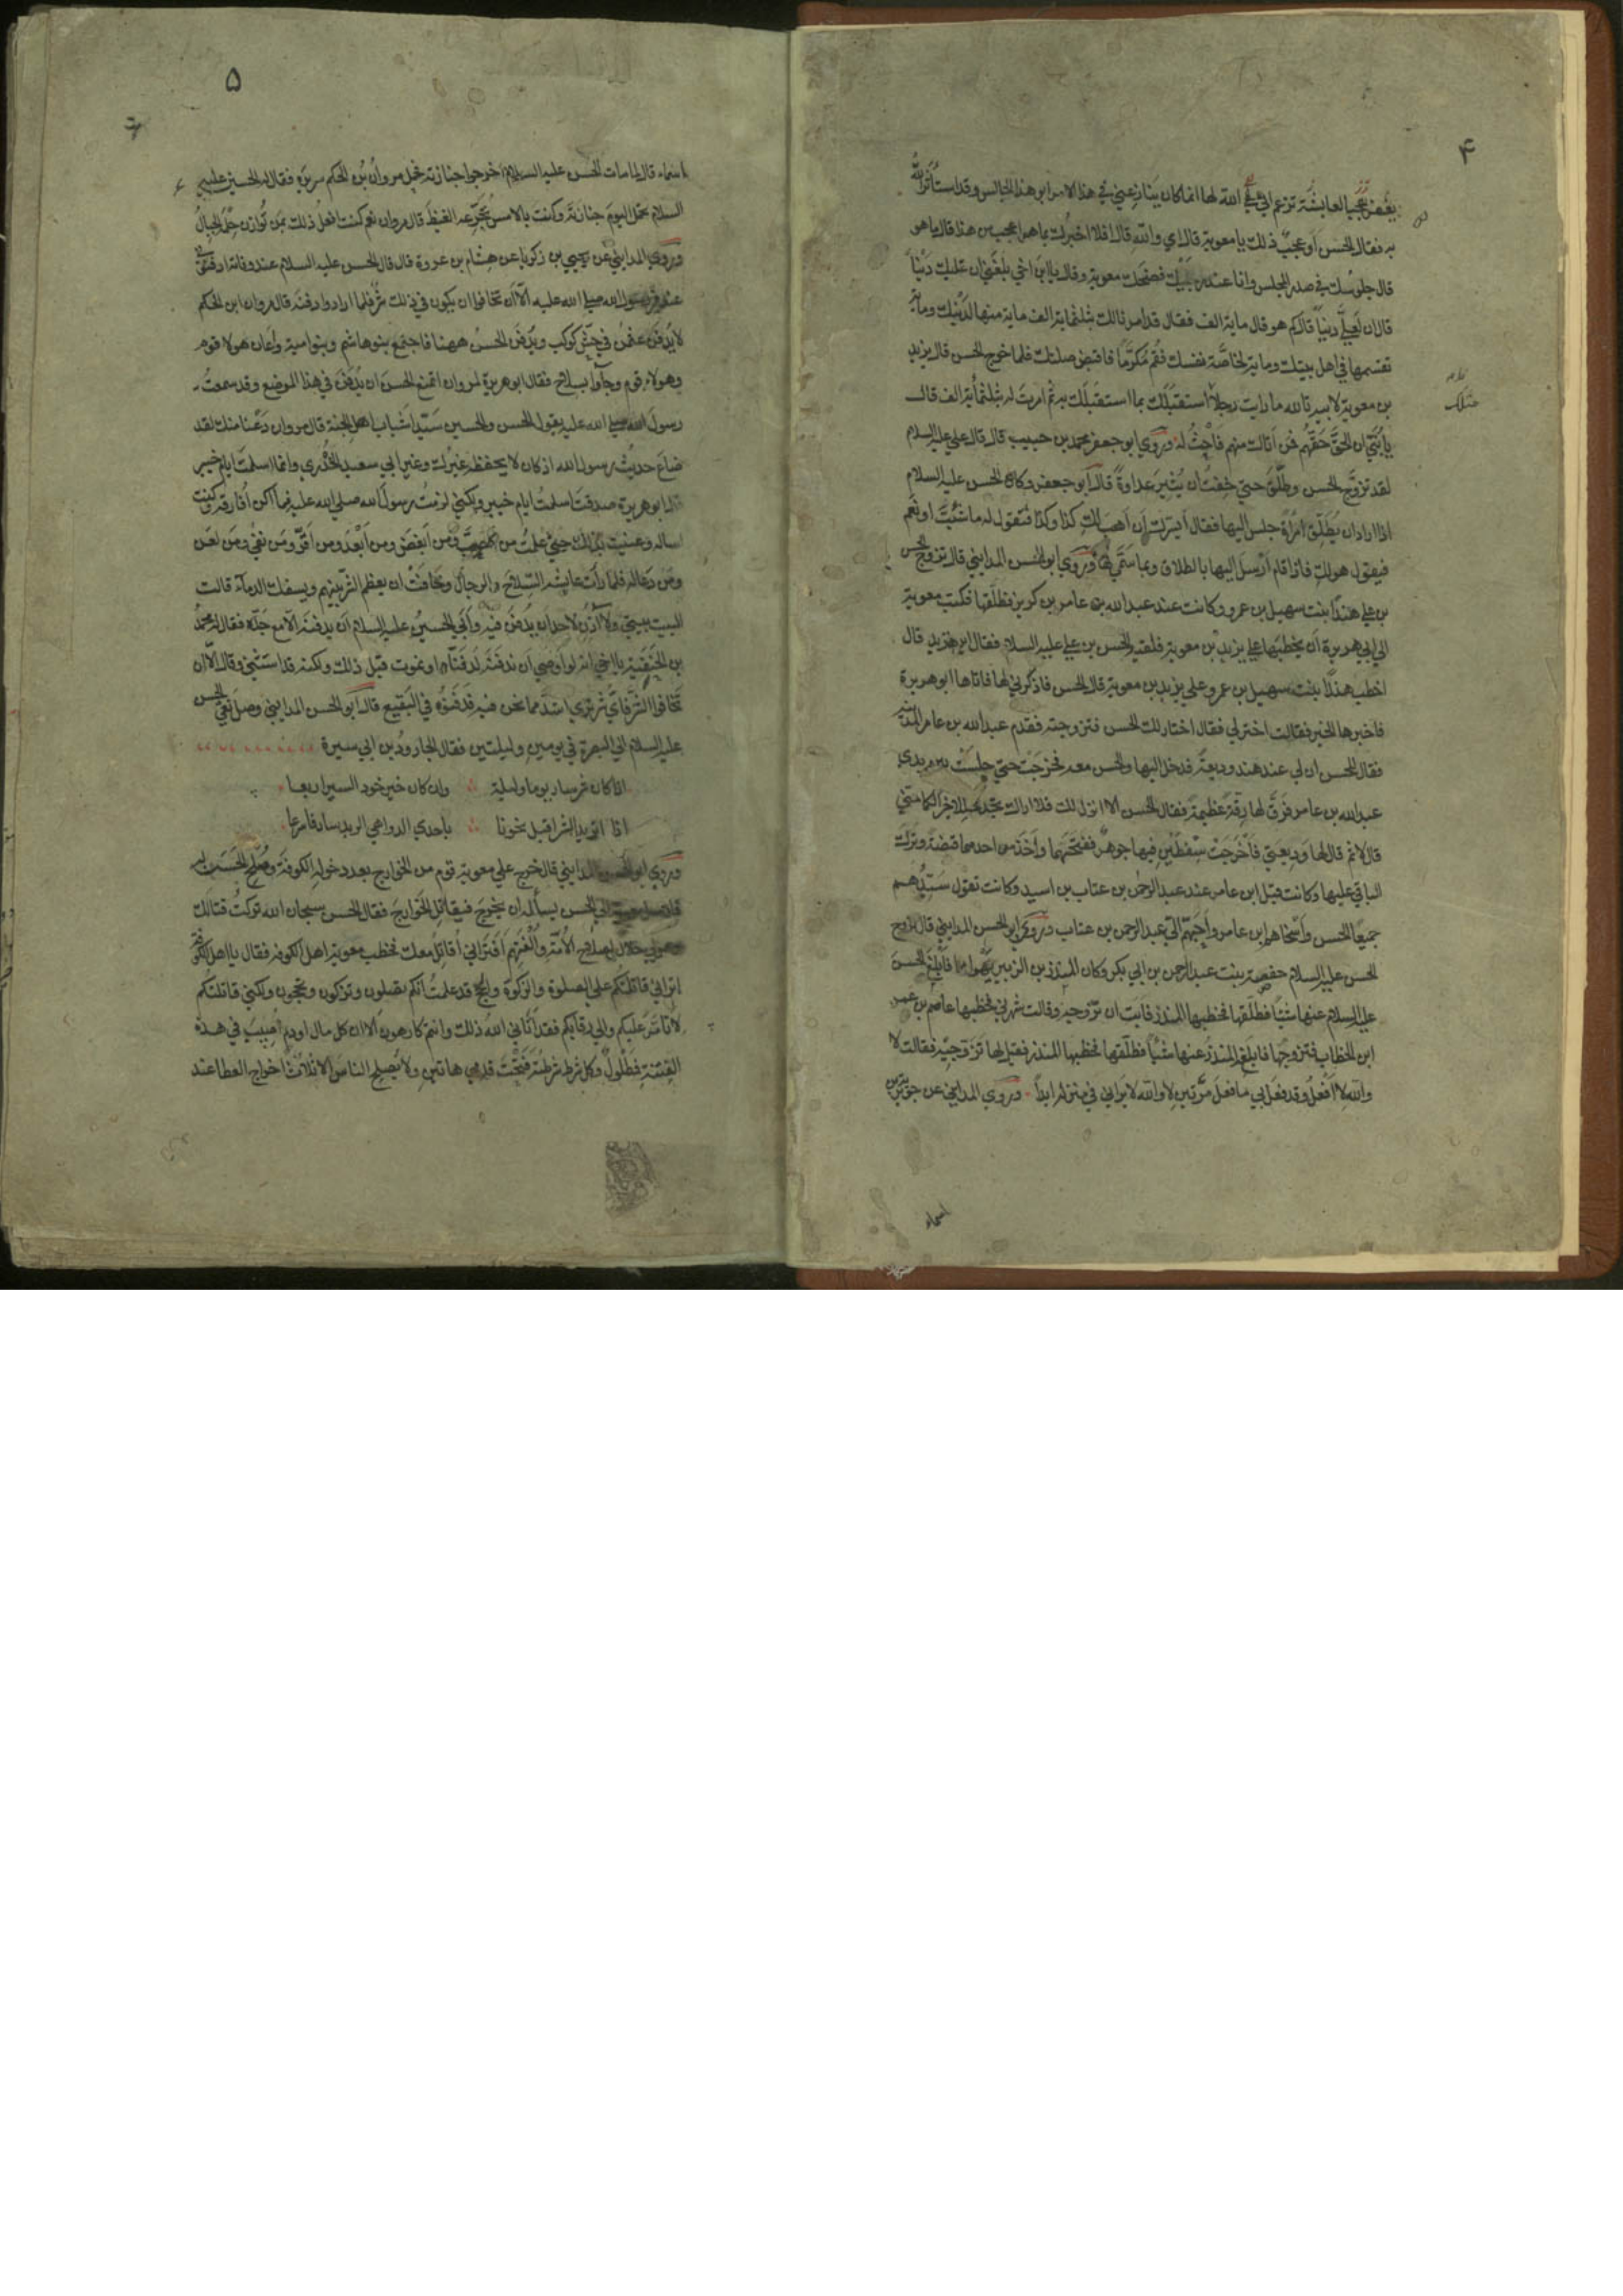 ۴
بغض عجبا لعايشة تزعم اني في غير ما انا اهله وان الذي اصبحت فيه ليس لي بحق مالها ولهذا يغفر الله لها انما كان ينازعني في هذا الامر ابو هذا الجالس وقد استأثر الله
به فقال الحسن أوعجب ذلك يا معوية قال اي والله قال افلا اخبرك بما هو اعجب من هذا قال ما هو
قال جلوسك في صدر المجلس وانا عند رجليك فضحك معوية وقال يا ابن اخي بلغني ان عليك دينا
قال ان لعلي دينا قال كم هو قال ماية الف فقال قد امرنا لك بثلثماية الف ماية منها لدينك وماية
تقسمها في اهل بيتك وماية لخاصة نفسك فقم مكرما فاقبض صلتك فلما خرج الحسن قال يزيد
بن معوية لابيه تالله ما رايت رجلا استقبلك بما استقبلك به ثم امرت له بثلثماية الف قال
يا بني ان الحق حقهم فمن اتاك منهم فاحث له وروي ابو جعفر محمد بن حبيب قال قال علي عليه السلام
لقد تزوج الحسن وطلق حتي خفت ان يثير عداوة قال ابو جعفر وكان الحسن عليه السلام
اذا اراد ان يطلق امراة جلس اليها فقال أيسرك ان اهب لك كذا وكذا فتقول له ما شئت او نعم
فيقول هو لك فاذا قام ارسل اليها بالطلاق وبما سمي لها وروي ابو الحسن المدايني قال تزوج الحسن
بن علي هندا بنت سهيل بن عمرو وكانت عند عبدالله بن عامر بن كريز فطلقها فكتب معوية
الي ابي هريرة ان يخطبها علي يزيد بن معوية فلقيه الحسن بن علي عليه السلام فقال اين تريد قال
اخطب هندا بنت سهيل بن عمرو علي يزيد بن معوية قال الحسن فاذكرني لها فاتاها ابو هريرة
فاخبرها الخبر فقالت اختر لي فقال اختار لك الحسن فتزوجته فقدم عبدالله بن عامر المدينة
فقال للحسن ان لي عند هند وديعة فدخل اليها والحسن معه فخرجت حتي جلست بين يدي
عبدالله بن عامر فرق لها رقة عظيمة فقال الحسن الا انزل لك عنها فلا اراك تجد محللا خيرا لكما مني
قال لا ثم قال لها وديعتي فاخرجت سفطين فيها جوهر ففتحهما واخذ من احدهما قبضة وترك
الباقي عليها وكانت قبل ابن عامر عند عبدالرحمن بن عتاب بن اسيد وكانت تقول سيدهم
جميعا الحسن واسخاهم ابن عامر واحبهم الي عبدالرحمن بن عتاب وروي ابو الحسن المدايني قال تزوج
الحسن عليه السلام حفصة بنت عبدالرحمن بن ابي بكر وكان المنذر بن الزبير يهواها فابلغ الحسن
عليه السلام عنها شيئا فطلقها فخطبها المنذر فابت ان تزوجه وقالت شهرني فخطبها عاصم بن عمر
ابن الخطاب فتزوجها فابلغه المنذر عنها شيئا فطلقها فخطبها المنذر فقيل لها تزوجيه فقالت لا
والله لا افعل وقد فعل بي ما فعل مرتين لا والله لا يراني في منزله ابدا وروي المدايني عن جويرية بن
اسماء
۵
اسماء قال لما مات الحسن عليه السلام اخرجوا جنازته فحمل مروان بن الحكم سريره فقال له الحسين عليه
السلام تحمل اليوم جنازته وكنت بالامس تجرعه الغيظ قال مروان نعم كنت افعل ذلك بمن توازن حلمه الجبال
وروي المدايني عن يحيي بن زكريا عن هشام بن عروة قال قال الحسن عليه السلام عند وفاته ادفنوني
عند قبر رسول الله صلي الله عليه الا ان تخافوا ان يكون في ذلك شر فلما ارادوا دفنه قال مروان ابن الحكم
لا يدفن عثمن في حش كوكب ويدفن الحسن ههنا فاجتمع بنو هاشم وبنو امية واعان هولا قوم
وهولاء قوم وجآوا بسلاح فقال ابو هريرة لمروان اتمنع الحسن ان يدفن في هذا الموضع وقد سمعت
رسول الله صلي الله عليه يقول الحسن والحسين سيدا شباب اهل الجنة قال مروان دعنا منك لقد
ضاع حديث رسول الله اذ كان لا يحفظه غيرك وغير ابي سعيد الخدري وانما اسلمت ايام خيبر
قال ابو هريرة صدقت اسلمت ايام خيبر ولكنني لزمت رسول الله صلي الله عليه فما اكن افارقه وكنت
اساله وعنيت بذلك حتي علمت من احب ومن ابغض ومن ابعد ومن اقر ومن نفي ومن لعن
ومن دعا له فلما رأت عايشة السلاح والرجال وخافت ان يعظم الشر بينهم ويسفك الدماء قالت
البيت بيتي ولا آذن لاحد ان يدفن فيه وأبي الحسين عليه السلام ان يدفنه الا مع جده فقال له محمد
بن الحنفية يا اخي انه لو اوصي ان ندفنه لدفناه او نموت قبل ذلك ولكنه قد استثني وقال الا ان
تخافوا الشر فاي شر تري اشد مما نحن فيه فدفنوه في البقيع قال ابو الحسن المدايني وصل نعي الحسن
عليه السلام الي البصرة في يومين وليلتين فقال الجارود بن ابي سبرة
اذا كان شر سار يوما وليلة وان كان خير خود السير اربعا
اذا ما بريد الشر اقبل نحونا باحدي الدواهي الربد سار فاسرعا
وروي ابو الحسن المدايني قال خرج علي معوية قوم من الخوارج بعد دخوله الكوفة وصلح الحسن له
فارسل معوية الي الحسن يسأله ان يخرج فيقاتل الخوارج فقال الحسن سبحان الله تركت قتالك
وهو لي حلال لصلاح الامة والفتهم افتراني اقاتل معك فخطب معوية اهل الكوفة فقال يا اهل الكوفة
اتراني قاتلتكم علي الصلوة والزكوة والحج وقد علمت انكم تصلون وتزكون وتحجون ولكني قاتلتكم
لاتأمر عليكم والي رقابكم فقد آتاني الله ذلك وانتم كارهون ألا ان كل مال او دم اصيب في هذه
الفتنة فمطلول وكل شرط شرطته فتحت قدمي هاتين ولا يصلح الناس الا ثلاث اخراج العطا عند